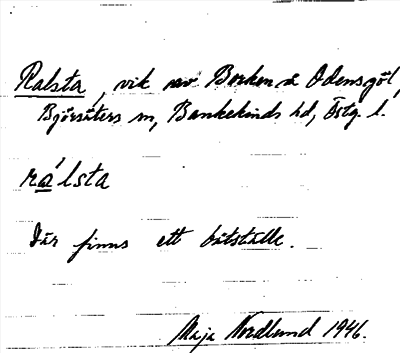 Ralsta, vik av Borken å Odensgöl,
Björsäters sn, Bankekinds hd, Östg. l.
rálsta
Där finns ett båtställe.
Maja Nordlund 1946.